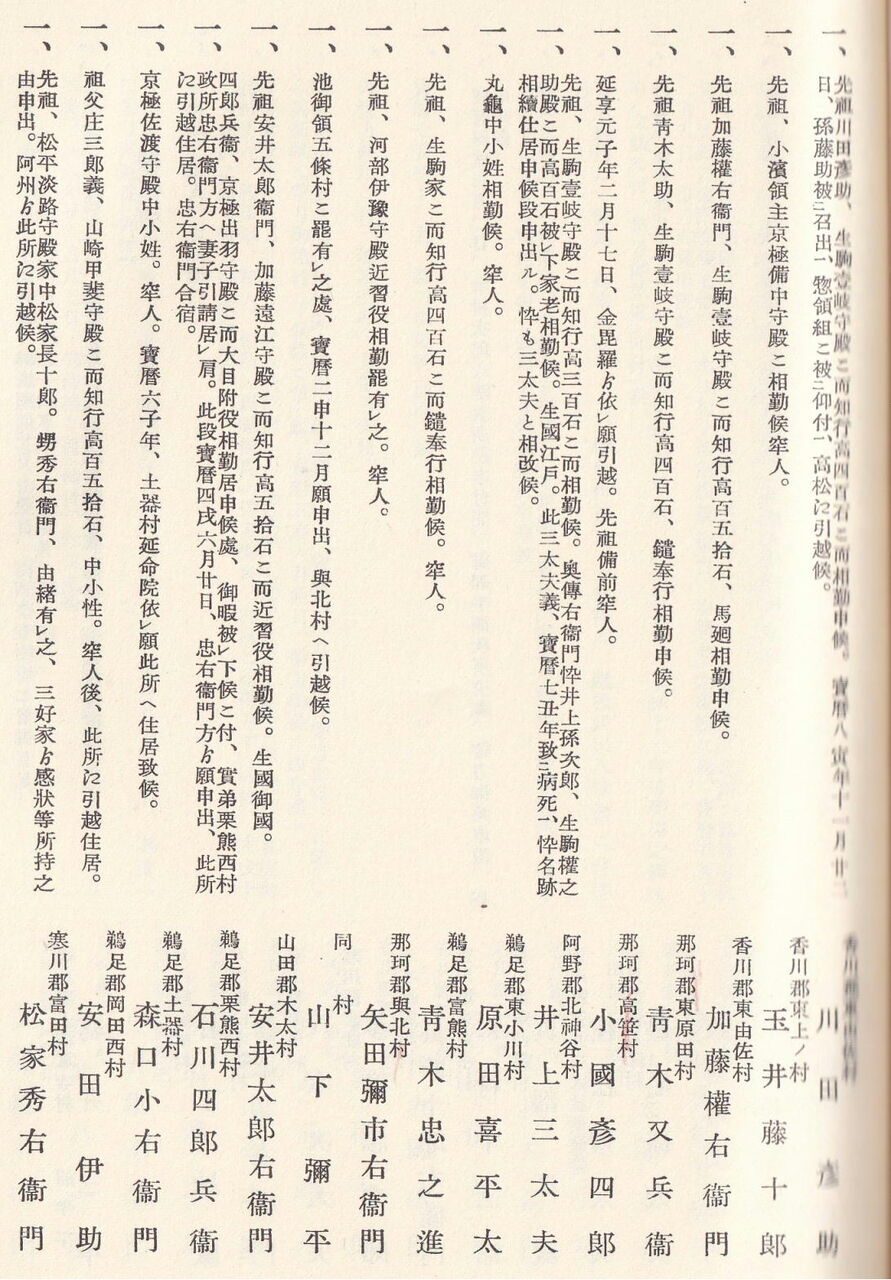 一、先祖川田彥助、生駒壹岐守殿ニ而知行高四百石ニ而相勤申候。寶曆八寅年十一月廿二
日、孫藤助被㆓召出㆒、惣領組ニ被㆓仰付㆒、高松ニ引越候。
香川郡東由佐村
川田彥助
一、先祖、小濱領主京極備中守殿ニ相勤候窂人。
香川郡東上ノ村
玉井藤十郞
一、先祖加藤權右衞門、生駒壹岐守殿ニ而知行高百五拾石、馬廻相勤申候。
香川郡東由佐村
加藤權右衞門
一、先祖靑木太助、生駒壹岐守殿ニ而知行高四百石、鑓奉行相勤申候。
那珂郡東原田村
靑木又兵衞
一、延享元子年二月十七日、金毘羅ゟ依㆑願引越。先祖備前窂人。
那珂郡高笹村
小國彥四郞
一、先祖、生駒壹岐守殿ニ而知行高三百石ニ而相勤候。奧傳右衞門忰井上孫次郞、生駒權之
助殿ニ而高百石被㆑下家老相勤候。生國江戶。此三太夫義、寶曆七丑年致㆓病死㆒、忰名跡
相續仕居申候段申出ル。忰も三太夫と相改候。
阿野郡北神谷村
井上三太夫
一、丸龜中小姓相勤候。窂人。
鵜足郡東小川村
原田喜平太
一、先祖、生駒家ニ而知行高四百石ニ而鑓奉行相勤候。窂人。
鵜足郡富熊村
靑木忠之進
一、先祖、河部伊豫守殿近習役相勤罷有㆑之。窂人。
那珂郡與北村
矢田彌市右衞門
一、池御領五條村ニ罷有㆑之處、寶曆二申十二月願申出、與北村へ引越候。
同村
山下彌平
一、先祖安井太郞衞門、加藤遠江守殿ニ而知行高五拾石ニ而近習役相勤候。生國御國。
山田郡木太村
安井太郞右衞門
一、四郞兵衞、京極出羽守殿ニ而大目附役相勤居申候處、御暇被㆑下候ニ付、實弟栗熊西村
政所忠右衞門方へ妻子引請居㆑肩。此段寶曆四戌六月廿日、忠右衞門方ゟ願申出、此所
ニ引越住居。忠右衞門合宿。
鵜足郡栗熊西村
石川四郞兵衞
一、京極佐渡守殿中小姓。窂人。寶曆六子年、土器村延命院依㆑願此所へ住居致候。
鵜足郡土器村
森口小右衞門
一、祖父庄三郞義、山崎甲斐守殿ニ而知行高百五拾石、中小性。窂人後、此所ニ引越住居。
鵜足郡岡田西村
安田伊助
一、先祖、松平淡路守殿家中松家長十郞。甥秀右衞門、由緖有㆑之、三好家ゟ感狀等所持之
由申出。阿州ゟ此所ニ引越候。
寒川郡富田村
松家秀右衞門